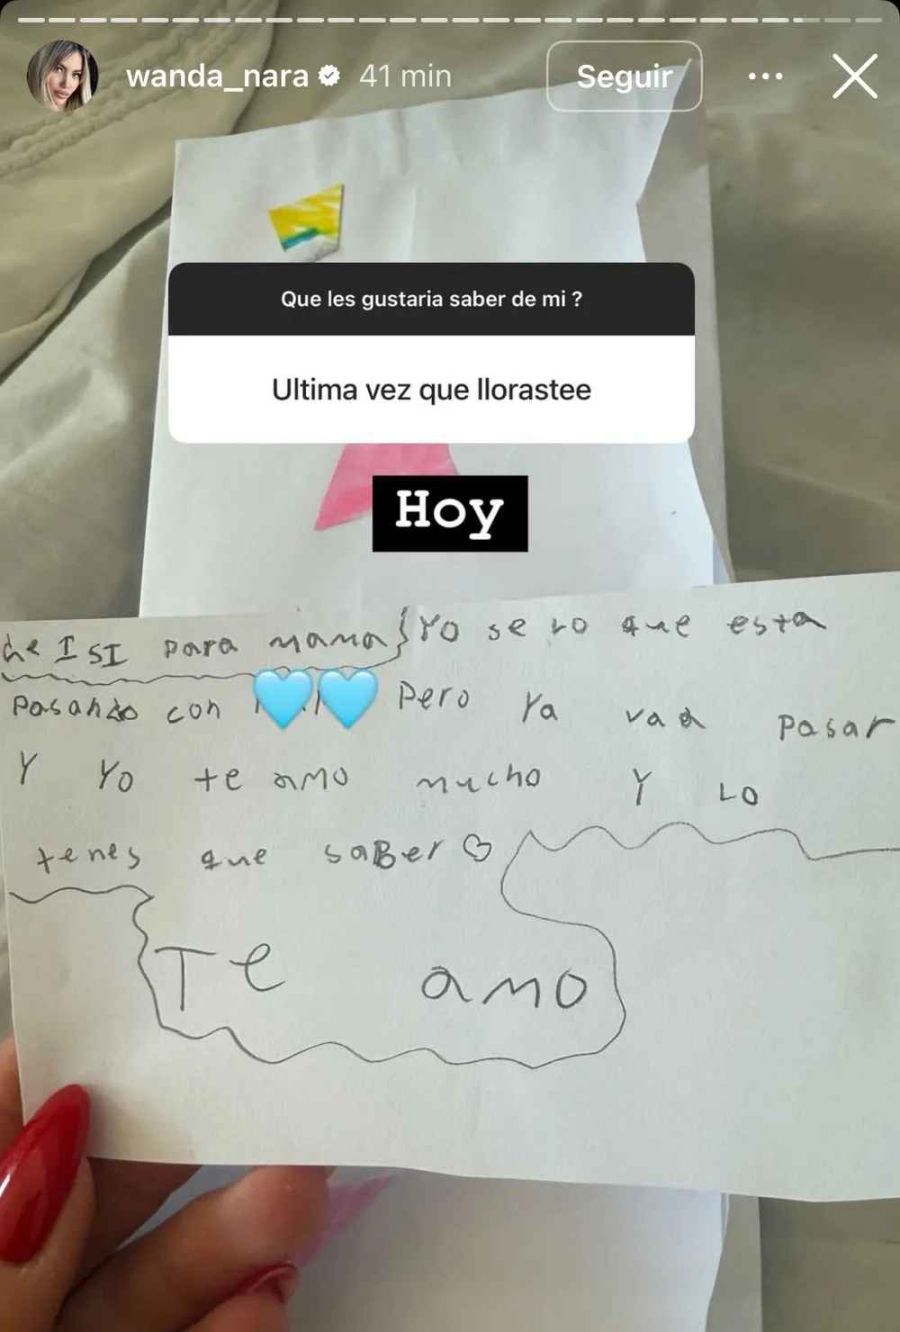 wanda_nara 41 min Seguir
Que les gustaria saber de mi ?
Ultima vez que llorastee
Hoy
de ISI para mama Yo se lo que esta
Pasando con Pero Ya vaa Pasar
Y Yo te amo mucho Y LO
tenes que saBer
Te amo